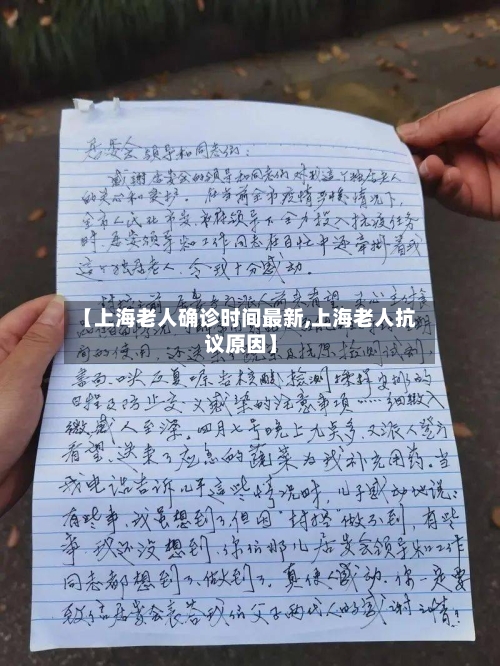 居委会领导和同志们:
感谢居委会的领导和同志们对我这个独居老人
的关心和爱护。在当前全市疫情严峻情况下,
全市人民在市委市府领导下全力投入抗疫任务
时,居委领导和工作同志在百忙中还牵挂着我
这个独居老人,令我十分感动。
【上海老人确诊时间最新,上海老人抗
议原因】
间的使用,还送来了
及抗原检测试剂,
书面、口头反复嘱告核酸检测采样安排的
日程及防止交叉感染的注意事项……细致入
微,感人至深。四月七号晚上九点多,又派人登门
看望,送来了应急的蔬菜为我补充用药。当
我电话告诉儿子这些情况时,儿子感动地说:
有些事,我虽想到了,但因“封控”做不到,有些
事,我还没想到,你们那儿居委会领导和工作
同志都想到了,做到了。真使人感动,你一定要
致信居委会表答我们父子两代人的感谢之情!